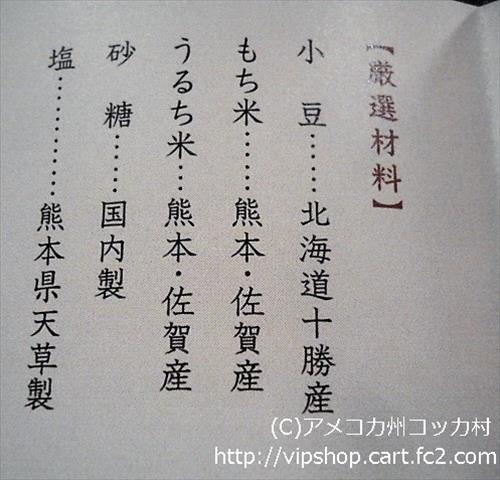 【厳選材料】
小　豆……北海道十勝産
もち米……熊本・佐賀産
うるち米…熊本・佐賀産
砂　糖……国内製
塩…………熊本県天草製
(C)アメコカ州コッカ村
http://vipshop.cart.fc2.com